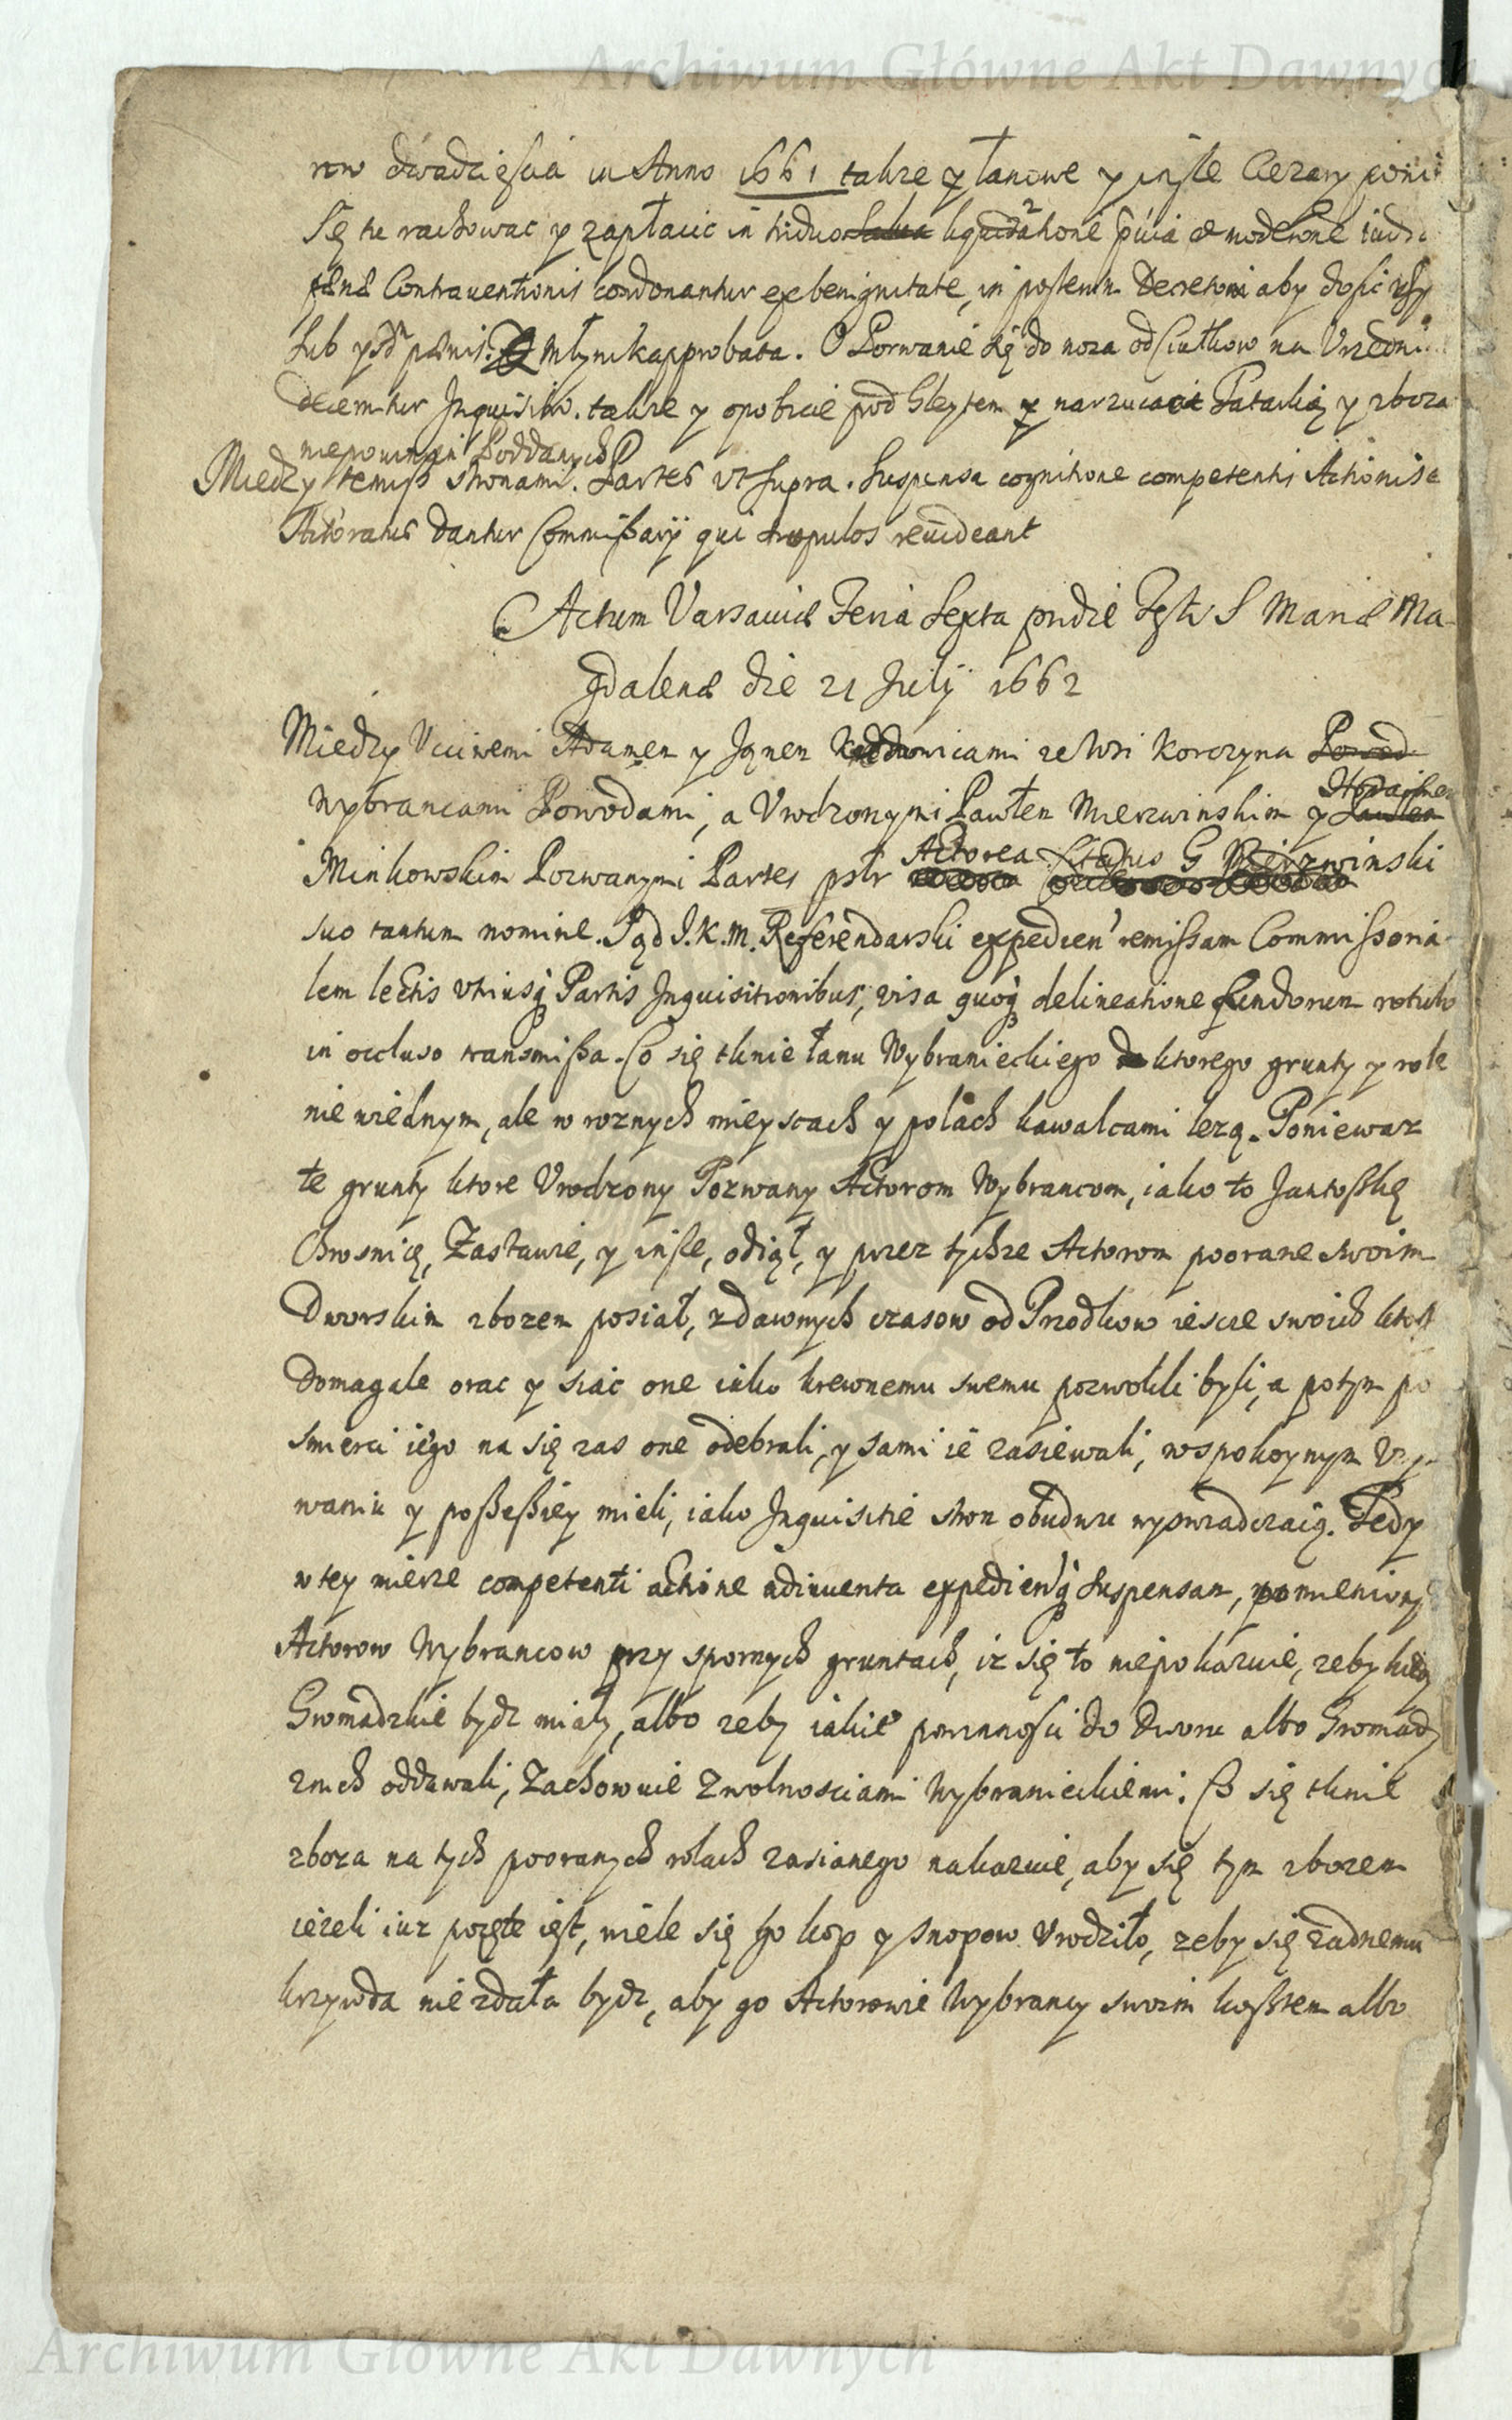 Archiwum Główne Akt Dawnych
row dwadziescia in Anno 1661 takze y łanowe y insze Ciezary
Się tu rachowac y zapłacic in triduo liquidatione pvia moderne
pænæ Contrauentionis condonantur ex benignitate, in posterum Decretowi aby dosic
Sub pænis. Młynik approbata. O Porwanie się do noza od Ciułkow na
decernitur Inquisitio. takze y opobicie pod Gleytem y narzucanie Tatarką y zboza
niepowinnęi Poddanych
Miedzy temisz stronami. Partes vt supra. Suspensa cognitione competentis Actionis
Actoratus dantur Commissarij qui scopulos reuideant
Actum Varsauiæ Feria Sexta pridie Fęsti S Mariæ Ma-
gdalenæ die 21 Julij 1662
Miedzy Vcciwemi Adamem y Janem ze Wsi Korczyna Powod
Wybrancami Powodami, a Vrodzonymi Pawłem Mierzwinskim y
Minkowskim Pozwanymi Partes pstr Actorea Citatus G Mierzwinski
suo tantum nomine. Sąd J.K.M. Referendarski expedien' remissam Commissoria-
lem lectis vtriusq Partis Inquisitionibus, visa quoq delineatione fundorum rotulo
in occluso transmissa. Co się tknie łanu Wybranieckiego do ktorego grunty y role
nie wiednym, ale w roznych mieyscach y polach kawalcami lezą. Poniewaz
te grunty ktore Vrodzony Pozwany Actorom Wybrancom, iako to Jantoskę
Chrosnicę, Zastawie, y insze, odiął, y przez tychze Actorow poorane swoim
Dworskim zbozem posiał, z dawnych czasow od Przodkow iescze swoich
Domagale orac y siac one iako krewnemu swemu pozwolili byli, a potym po
smierci iego na się zas one odebrali, y sami ie zasiewali, w spokoynym Vzy-
waniu y possessiey mieli, iako Inquisitie stron obudwu wyswiadczaią. Tedy
w tey mierze competenti actione adinuenta expedien'q suspensam, pomieniony
Actorow Wybrancow przy spornych gruntach, iz się to niepokazuie, zeby kiedy
Gromadzkie bydz miały, albo zeby iakie powinnosci do Dworu albo Gromady
znich oddawali, Zachowuie Zwolnosciami Wybranieckiemi. Co się tknie
zboza na tych pooranych rolach zasianego nakazuie, aby się tym zbozem
iezeli iuz pozęte iest, wiele się go kop y snopow Vrodziło, zeby się zadnemu
krzywda nie zdała bydz, aby go Actorowie Wybrancy swoim kosztem albo
Archiwum Główne Akt Dawnych